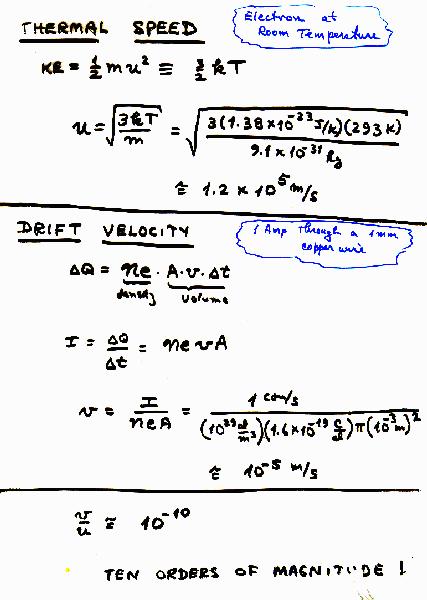 THERMAL SPEED
Electron at
Room Temperature
KE = 1/2 m u² ≡ 3/2 kT
u = √(3kT/m) = √(3(1.38×10⁻²³ J/K)(293 K) / 9.1×10⁻³¹ kg)
≅ 1.2 × 10⁵ m/s
DRIFT VELOCITY
1 Amp through a 1mm
copper wire
ΔQ = ne · A·v·Δt
density volume
I = ΔQ/Δt = nevA
v = I/neA = 1 coul/s / (10²⁹ el/m³)(1.6×10⁻¹⁹ C/el)π(10⁻³m)²
≅ 10⁻⁵ m/s
v/u ≅ 10⁻¹⁰
TEN ORDERS OF MAGNITUDE !